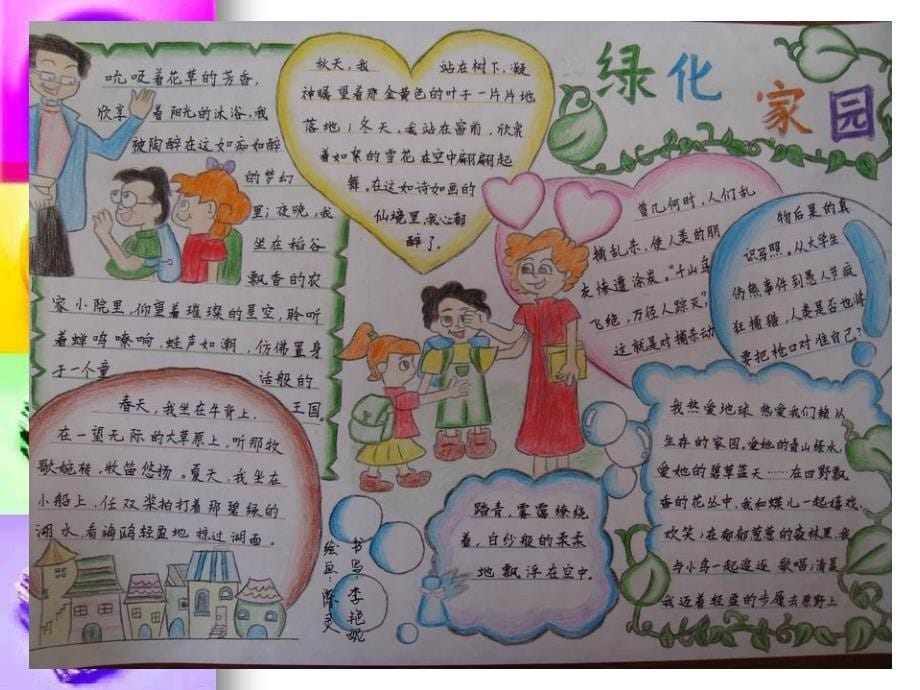 绿化家园
吮吸着花草的芳香,
欣享着阳光的沐浴,我
被陶醉在这如痴如醉
的梦幻
里;夜晚,我
坐在稻谷
飘香的农
家小院里,仰望着璀璨的星空,聆听
着蝉鸣嘹响,蛙声如潮,仿佛置身
于一个童话般的
王国。
秋天,我站在树下,凝
神瞩望着那金黄色的叶子一片片地
落地;冬天,我站在窗前,欣赏
着如絮的雪花在空中翩翩起
舞,在这如诗如画的
仙境里,我心都
醉了。
曾几何时,人们乱
捕乱杀,使人类的朋
友惨遭涂炭。“千山鸟
飞绝,万径人踪灭”,
这就是对捕杀动
物后果的真
识写照。从大学生
伤熊事件到愚人节疯
狂捕猫,人类是否也将
要把枪口对准自己?
春天,我坐在牛背上,
在一望无际的大草原上,听那牧
歌婉转,牧笛悠扬。夏天,我坐在
小船上,任双桨拍打着那碧绿的
湖水,看海鸥轻盈地掠过湖面。
书写:李艳妮
绘画:陈灵
踏青,雾霭缭绕
着,白纱般的柔柔
地飘浮在空中。
我热爱地球,热爱我们赖以
生存的家园。爱她的青山绿水,
爱她的碧草蓝天……在四野飘
香的花丛中,我和蝶儿一起嬉戏、
欢笑;在郁郁葱葱的森林里,我
与小鸟一起追逐、歌唱;清晨
我迈着轻盈的步履去原野上